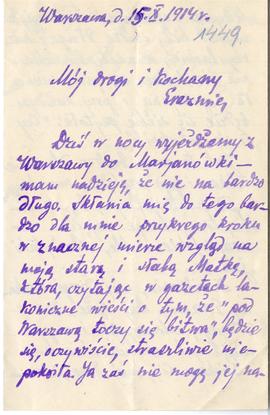 Warszawa, d. 15.X.1914 r.
1449.
Mój drogi i kochany
Erazmie,
Dziś w nocy wyjeżdżamy z
Warszawy do Marjanówki –
mam nadzieję, że nie na bardzo
długo. Skłania mię do tego bar-
dzo dla mnie przykrego kroku
w znacznej mierze wzgląd na
moją starą i słabą Matkę,
która, czytając w gazetach la-
koniczne wieści o tym, że "pod
Warszawą toczy się bitwa", będzie
się, oczywiście, straszliwie nie-
pokoiła. Ja zaś nie mogę jej na-